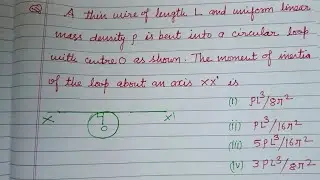 Q5 A thin wire of length L and uniform linear
mass density ρ is bent into a circular loop
with centre O as shown. The moment of inertia
of the loop about an axis XX' is
(i) ρL³/8π²
(ii) ρL³/16π²
(iii) 5ρL³/16π²
(iv) 3ρL³/8π²
X X'
O